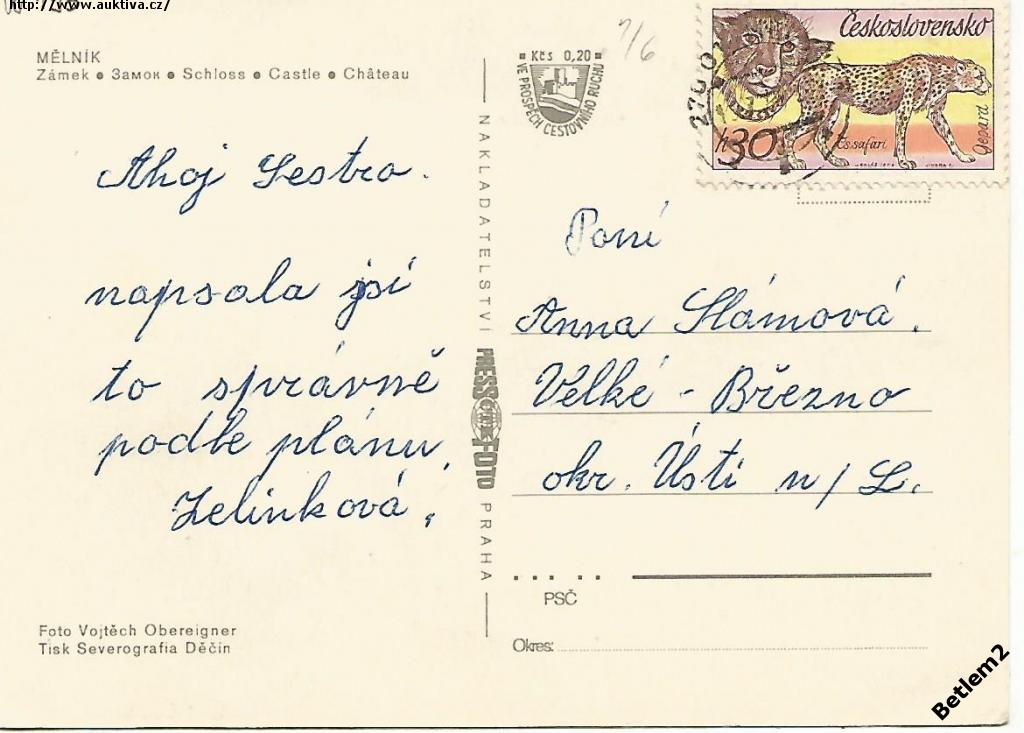 http://www.auktiva.cz/
MĚLNÍK
Zámek • Замок • Schloss • Castle • Château
Ahoj Sestro.
napsala jsi
to správně
podle plánu,
Zelinková.
Foto Vojtěch Obereigner
Tisk Severografia Děčín
NAKLADATELSTVÍ PRESSFOTO PRAHA
Kčs 0,20
VE PROSPĚCH CESTOVNÍHO RUCHU
7/6
Československo
30h
Čs. safari
Gepard
270 0
Paní
Anna Slámová.
Velké - Březno
okr. Ústí n/L.
PSČ
Okres:
Betlem2